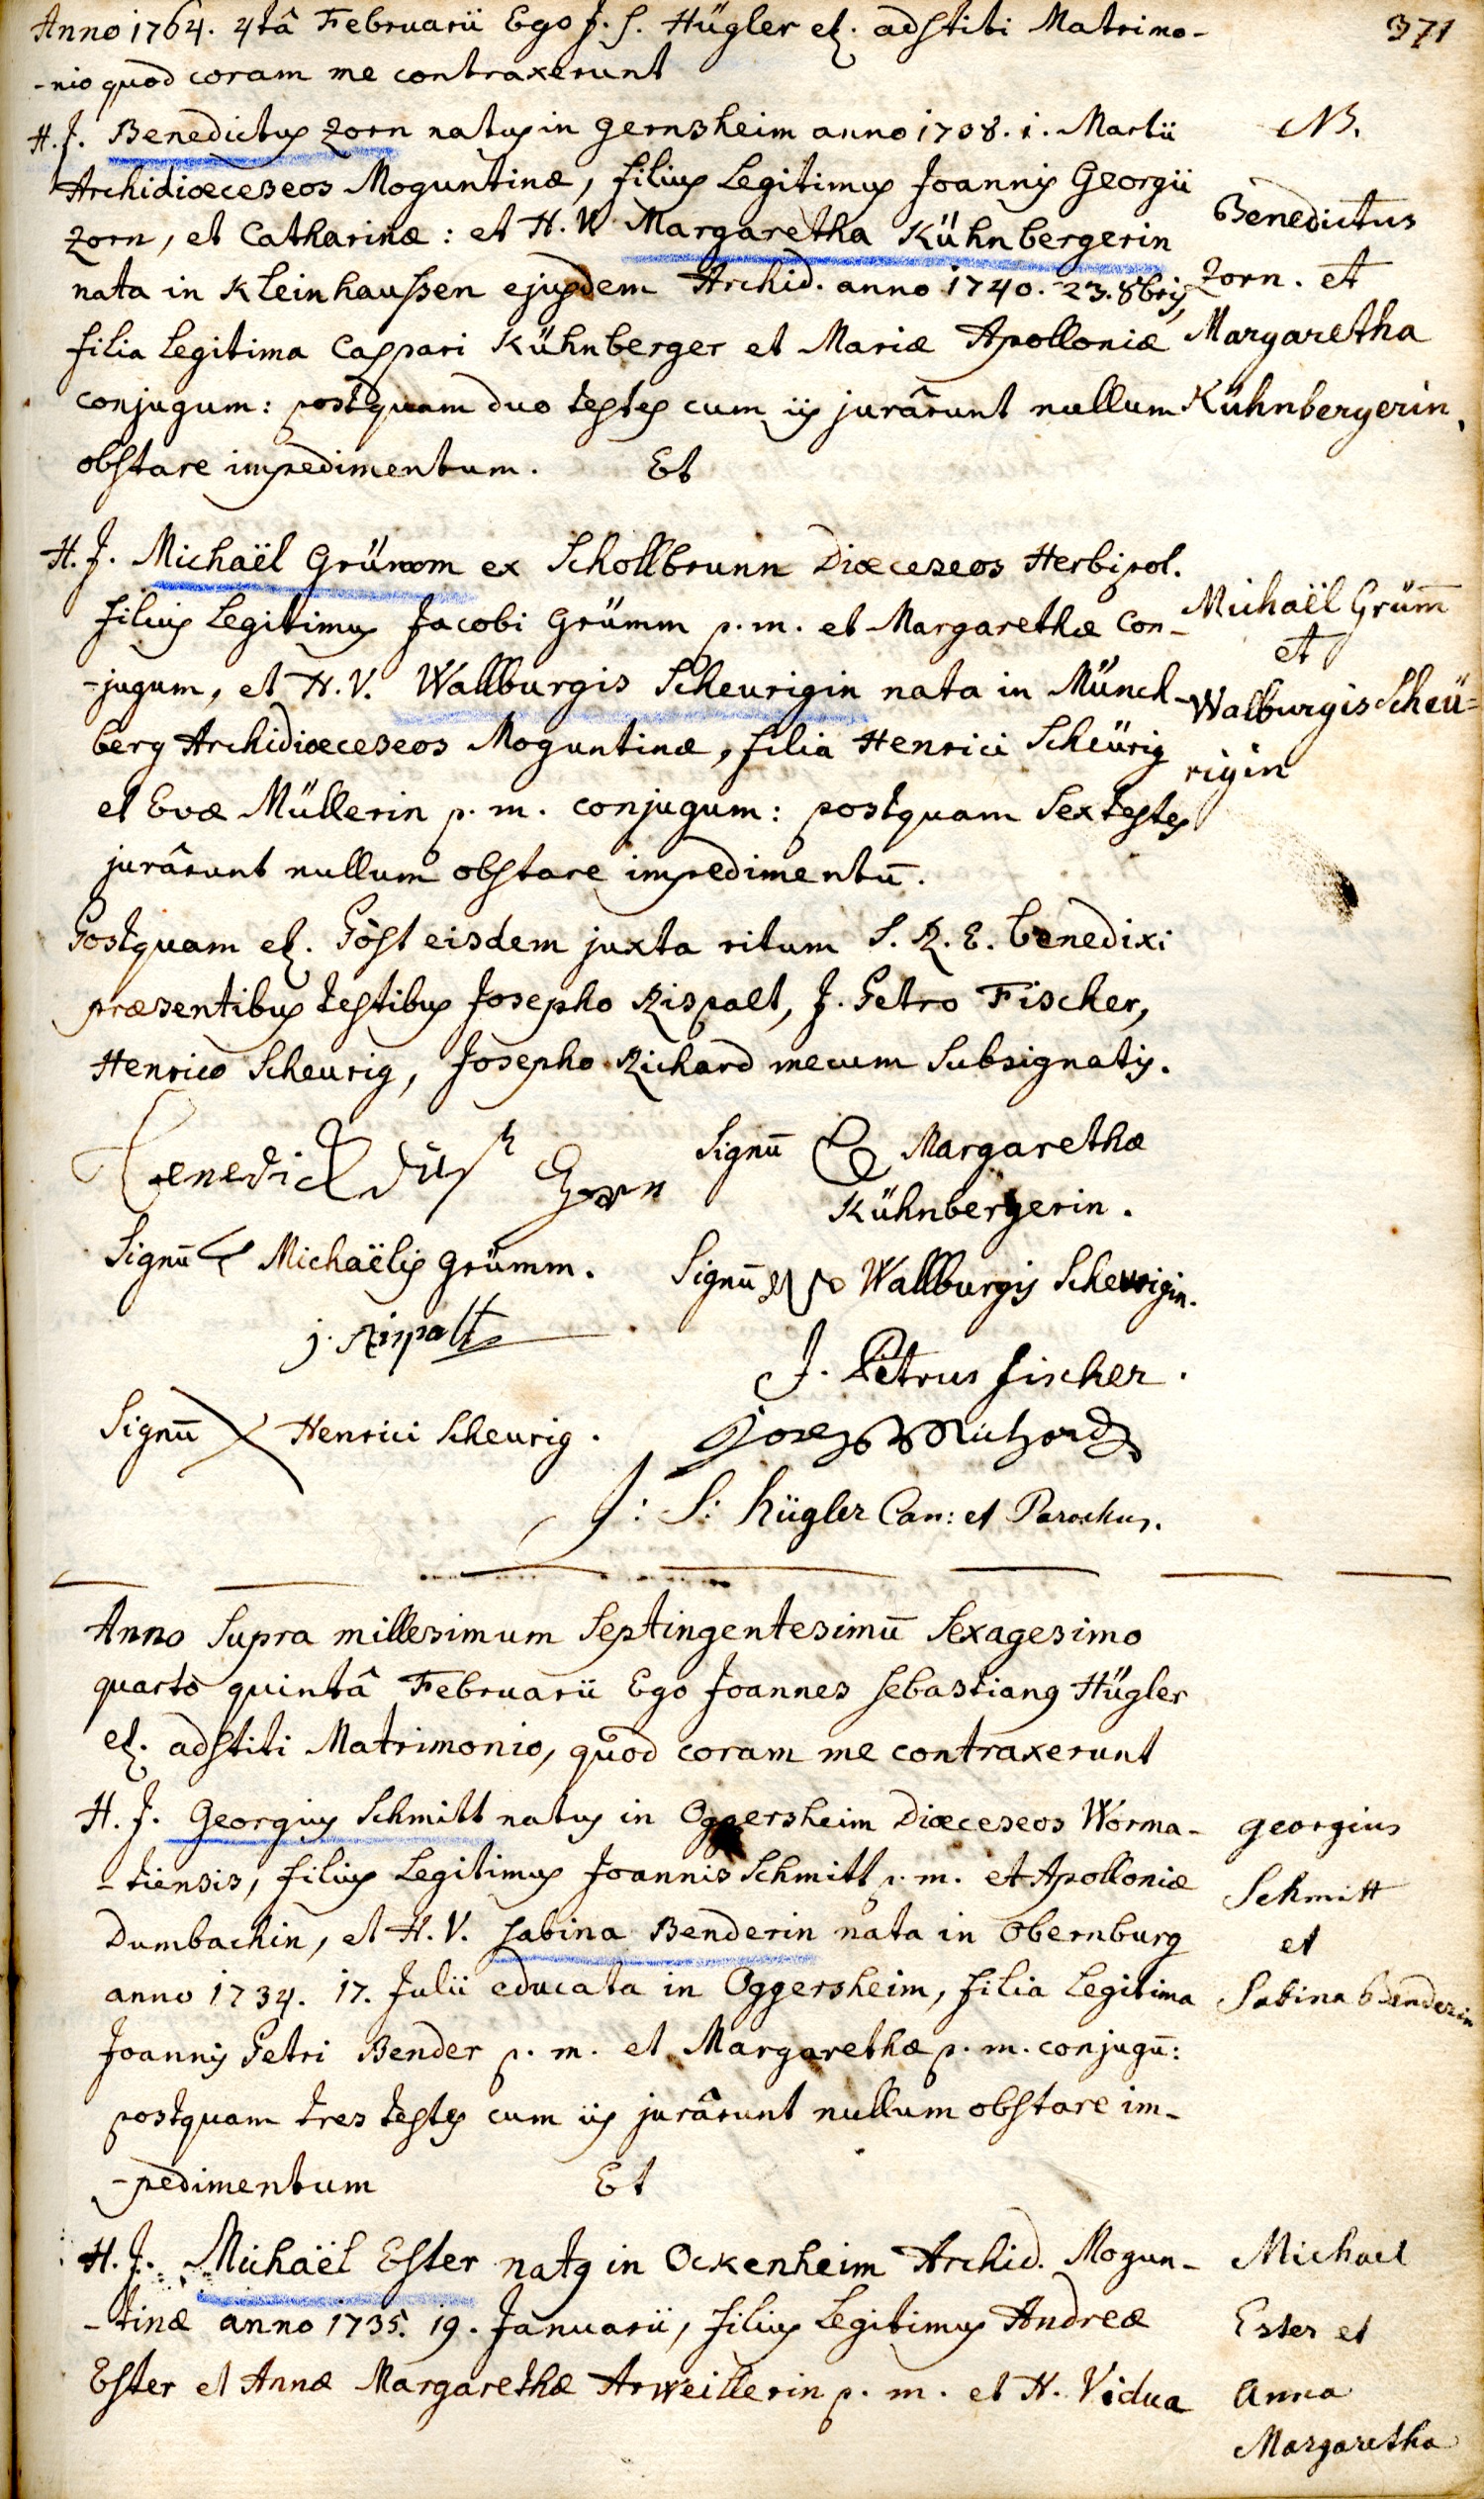 Anno 1764. 4tâ Februarii Ego J. S. Hügler etc. adstiti Matrimo-
371
-nio quod coram me contraxerunt
H. J. Benedictus Zorn natus in gernsheim anno 1738. 1. Martii
NB.
Archidiœceseos Moguntinæ, filius Legitimus Joannis Georgii
Zorn, et Catharinæ: et H. V. Margaretha Kühnbergerin
Benedictus
nata in Kleinhaussen ejusdem Archid. anno 1740. 23. 8bris,
Zorn. et
filia Legitima Caspari Kühnberger et Mariæ Apolloniæ
Margaretha
conjugum: postquam duo testes cum iis jurârunt nullum
Kühnbergerin.
obstare impedimentum. Et
H. J. Michaël Grümm ex Schollbrunn Diœceseos Herbipol.
filius Legitimus Jacobi Grümm p. m. et Margarethæ Con-
Michaël Grüm̄
et
-jugum, et H. V. Wallburgis Scheurigin nata in Münch-
Walburgis Scheü=
berg Archidiœceseos Moguntinæ, filia Henrici Scheürig
rigin
et Evæ Müllerin p. m. conjugum: postquam Sex testes
jurârunt nullum obstare impedimentū.
Postquam etc. Pòst eisdem juxta ritum S. R. E. benedixi
præsentibus testibus Josepho Rispalt, J. Petro Fischer,
Henrico Scheurig, Josepho Richard mecum Subsignatis.
Signū Margarethæ
Zorn
Kühnbergerin.
Signū Michaëlis Grümm.
Signū Wallburgis Scheurigin.
j. Rispalt
J. Petrus fischer.
Signū X Henrici Scheurig.
Joseph Richard
J: S: hügler Can: et Parochus.
Anno Supra millesimum Septingentesimū Sexagesimo
quarto quintâ Februarii Ego Joannes Sebastianus Hügler
etc. adstiti Matrimonio, quod coram me contraxerunt
H. J. Georgius Schmitt natus in Oggersheim Diœceseos Worma-
georgius
-tiensis, filius Legitimus Joannis Schmitt p. m. et Apolloniæ
Schmitt
Dumbachin, et H. V. Sabina Benderin nata in Obernburg
et
anno 1734. 17. Julii educata in Oggersheim, filia Legitima
Sabina benderin
Joannis Petri Bender p. m. et Margarethæ p. m. conjugū:
postquam tres testes cum iis jurârunt nullum obstare im-
-pedimentum Et
H. J. Michaël Ester natus in Ockenheim Archid. Mogun-
Michael
-tinæ anno 1735. 19. Januarii, filius Legitimus Andreæ
Ester et
Ester et Annæ Margarethæ Arweillerin p. m. et H. Vidua
Anna
Margaretha